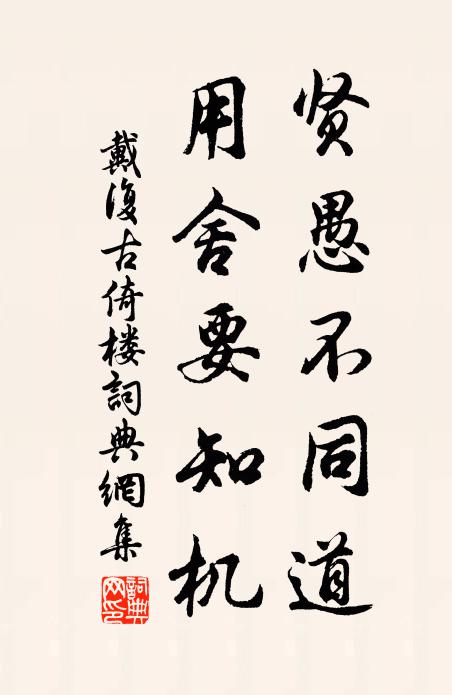 贤愚不同道
用舍要知机
戴復古倚楼詞典網集
詞典网印